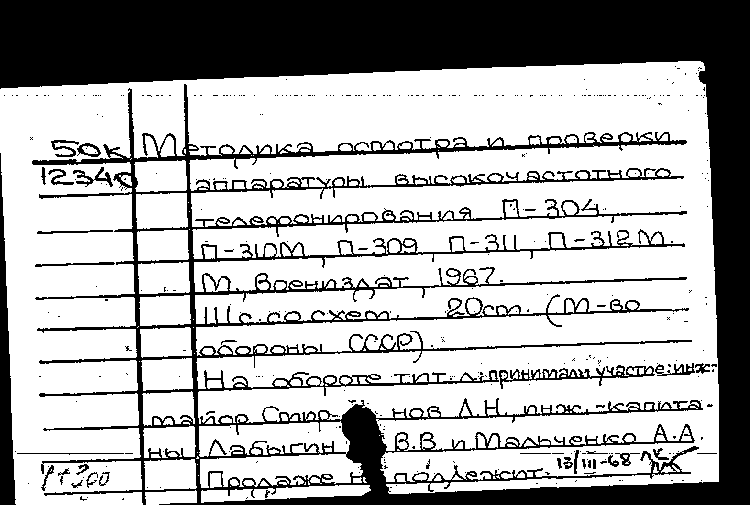 50к Методика осмотра и проверки
12340 аппаратуры высокочастотного
телефонирования П-304,
П-310М, П-309, П-311, П-312М.
М., Воениздат, 1967.
111с. со схем. 20см. (М-во
обороны СССР).
На обороте тит. л.: принимали участие: инж.-
майор Спир- нов Л.Н., инж.-капита-
ны Лабыгин В.В и Мальченко А.А.
Продаже н подлежит. 13/III-68